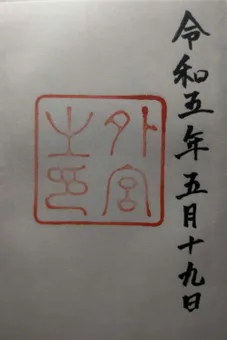 令和五年五月十九日
外宮
之印